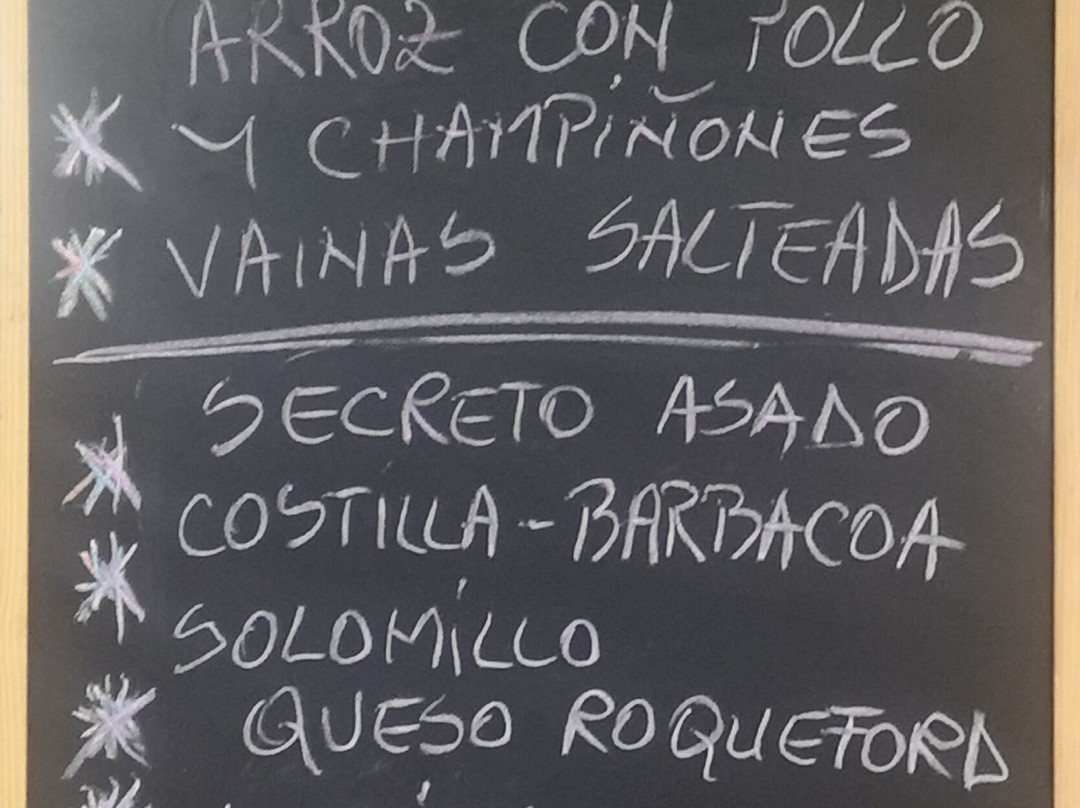 ARROZ CON POLLO
Y CHAMPIÑONES
VAINAS SALTEADAS
SECRETO ASADO
COSTILLA-BARBACOA
SOLOMILLO
QUESO ROQUEFORD